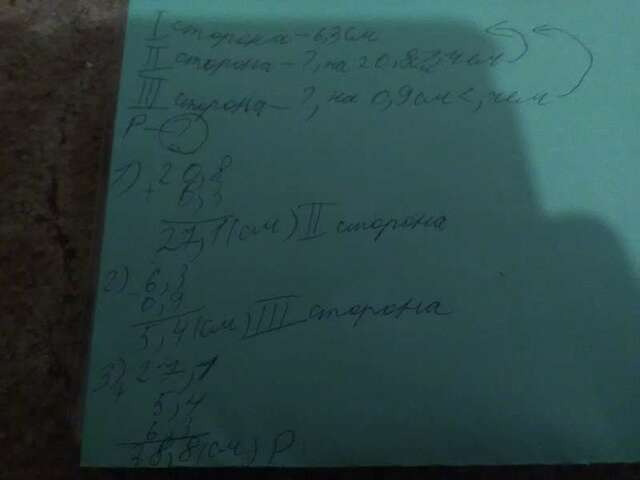 I сторона - 6,3 см
II сторона - ?, на 20,8 >, чем
III сторона - ?, на 0,9 см <, чем
P - ?
1) 20,8
+ 6,3
27,1 (см) II сторона
2) 6,3
0,9
5,4 (см) III сторона
3) 27,1
+ 5,4
6,3
38,8 (см) P